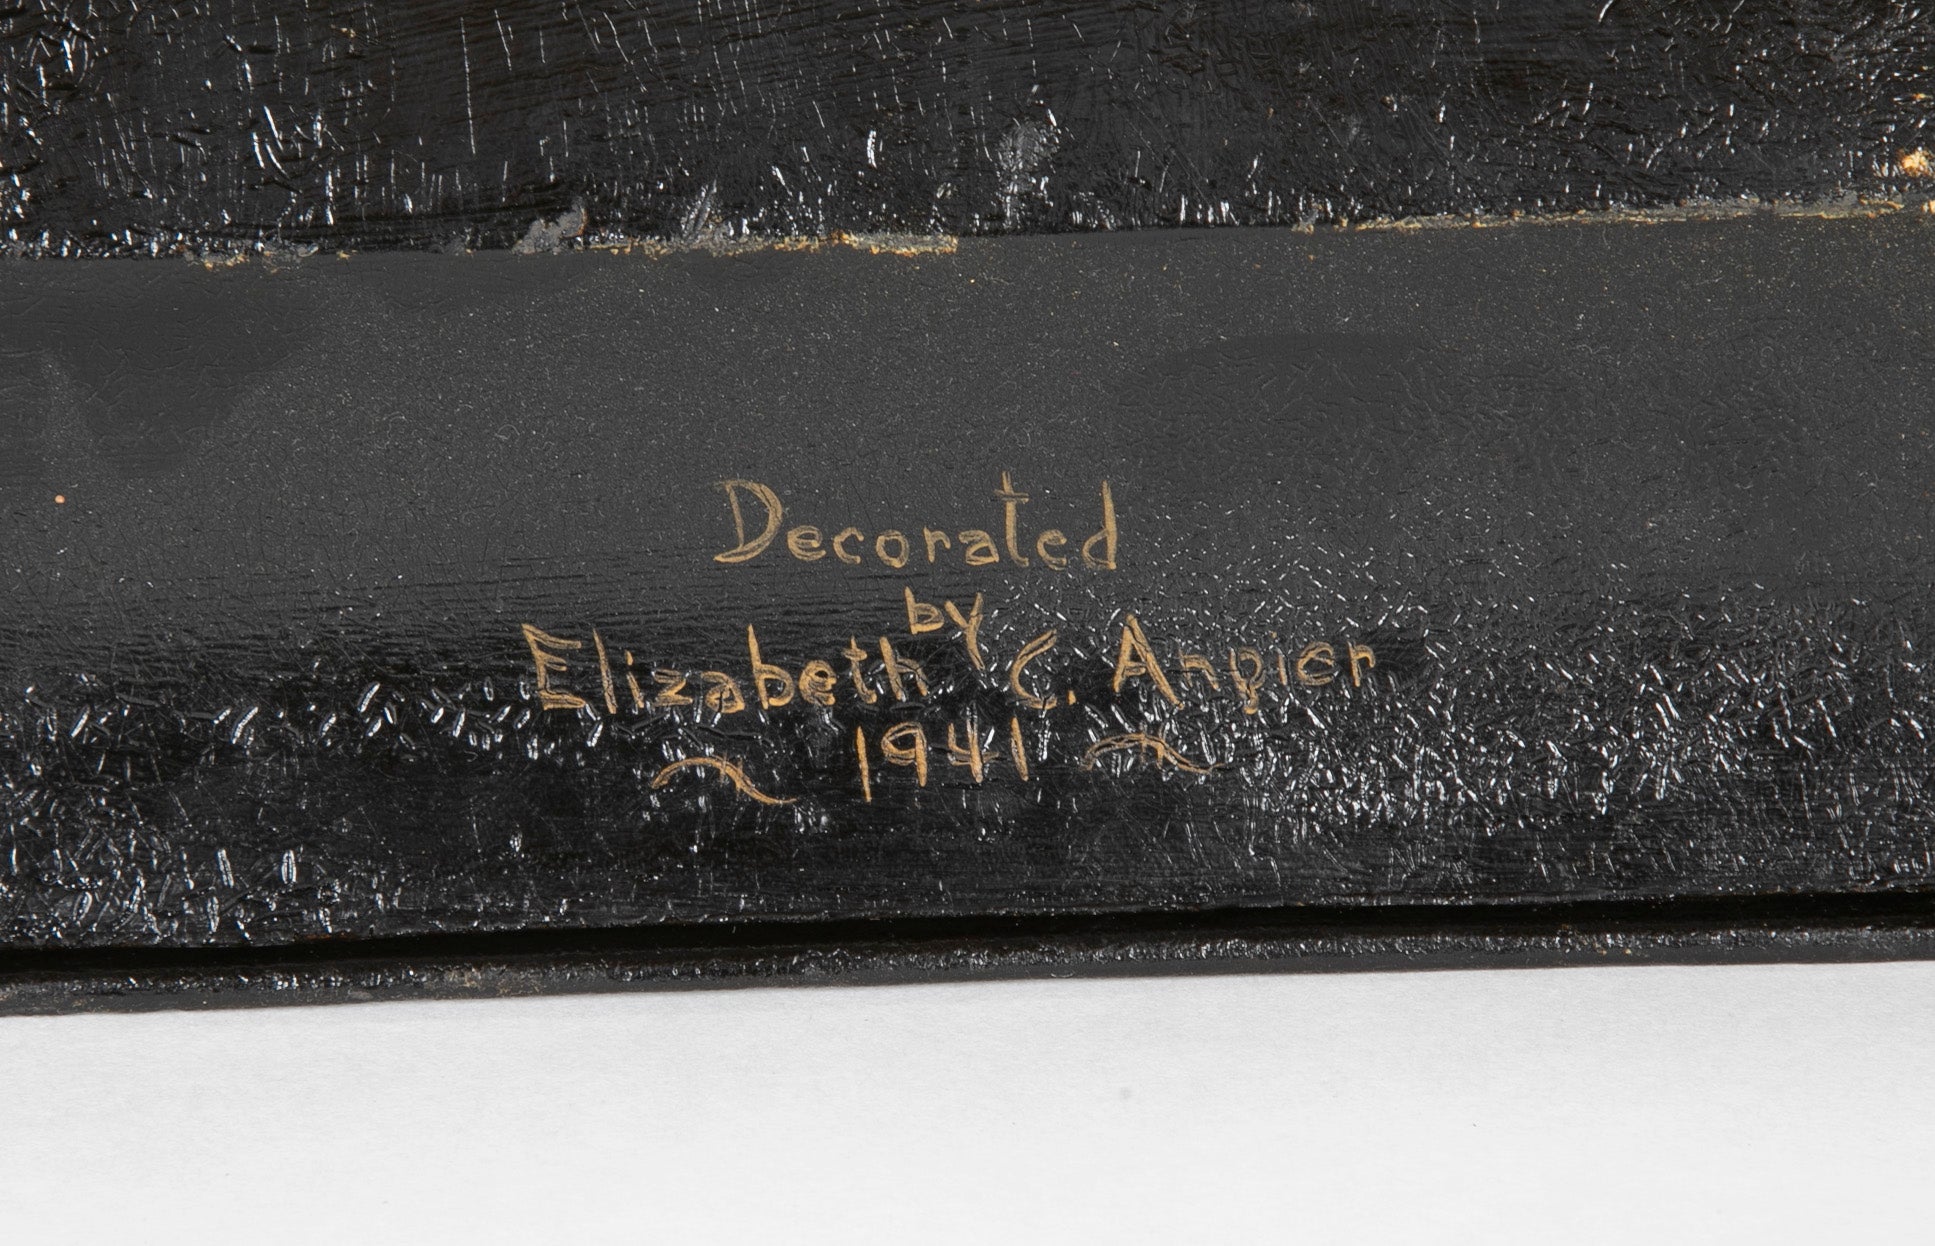 Decorated
by
Elizabeth C. Anpier
~ 1941 ~